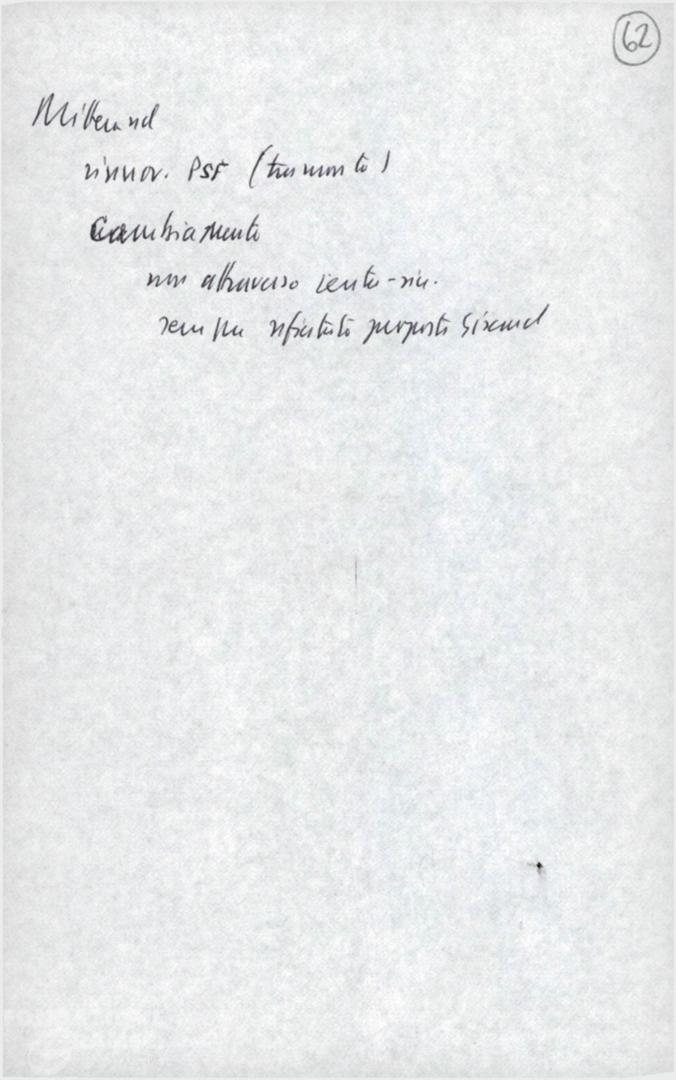 62
Mitterand
rinnov. PSF (tramonto)
Cambiamento
non attraverso centro-sin.
sempre rifiutato proposte Giscard